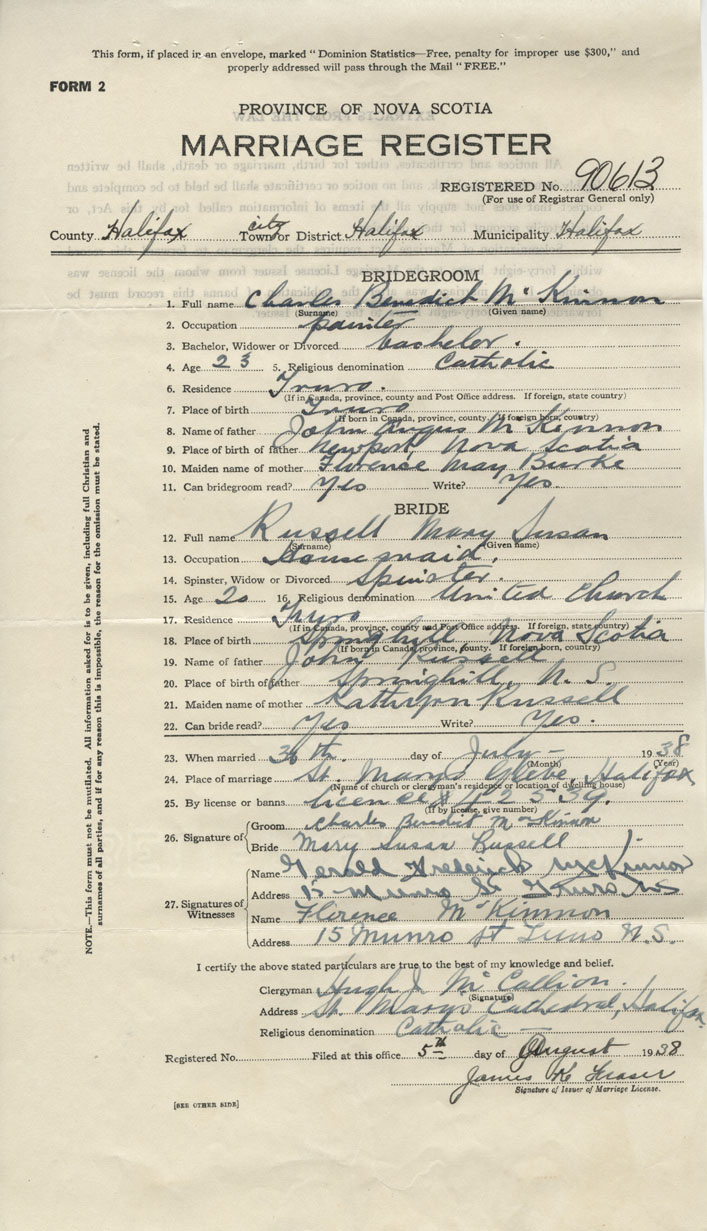 This form, if placed in an envelope, marked "Dominion Statistics—Free, penalty for improper use $300," and
properly addressed will pass through the Mail "FREE."
FORM 2
PROVINCE OF NOVA SCOTIA
MARRIAGE REGISTER
REGISTERED No. 90613
(For use of Registrar General only)
County Halifax city Town or District Halifax Municipality Halifax
BRIDEGROOM
1. Full name Charles Benedict McKinnon
(Surname) (Given name)
2. Occupation painter
3. Bachelor, Widower or Divorced bachelor.
4. Age 23 5. Religious denomination Catholic
6. Residence Truro.
(If in Canada, province, county and Post Office address. If foreign, state country)
7. Place of birth Truro
(If born in Canada, province, county. If foreign born, country)
8. Name of father John Angus McKinnon
9. Place of birth of father Newport, Nova Scotia
10. Maiden name of mother Florence May Burke
11. Can bridegroom read? Yes Write? Yes.
BRIDE
12. Full name Russell Mary Susan
(Surname) (Given name)
13. Occupation Housemaid.
14. Spinster, Widow or Divorced Spinster.
15. Age 20 16. Religious denomination United Church
17. Residence Truro
(If in Canada, province, county and Post Office address. If foreign, state country)
18. Place of birth Springhill Nova Scotia
(If born in Canada, province, county. If foreign born, country)
19. Name of father John Russell
20. Place of birth of father Springhill, N. S.
21. Maiden name of mother Kathryn Russell
22. Can bride read? Yes Write? Yes.
23. When married 30th. day of July — 1938
(Month) (Year)
24. Place of marriage St. Marys Glebe, Halifax
(Name of church or clergyman's residence or location of dwelling house)
25. By license or banns licence #
(If by license, give number)
26. Signature of Groom Charles Benedict McKinnon
Bride Mary Susan Russell
27. Signatures of Witnesses Name Gerald Frederick McKinnon
Address 15 Munro St Truro NS
Name Florence McKinnon
Address 15 Munro St Truro N.S.
I certify the above stated particulars are true to the best of my knowledge and belief.
Clergyman Hugh J. McCallion.
(Signature)
Address St. Marys Cathedral, Halifax
Religious denomination Catholic —
Registered No. Filed at this office 5th day of August 1938
James K Fraser
Signature of Issuer of Marriage License.
[SEE OTHER SIDE]
NOTE.—This form must not be mutilated. All information asked for is to be given, including full Christian and
surnames of all parties, and if for any reason this is impossible, the reason for the omission must be stated.